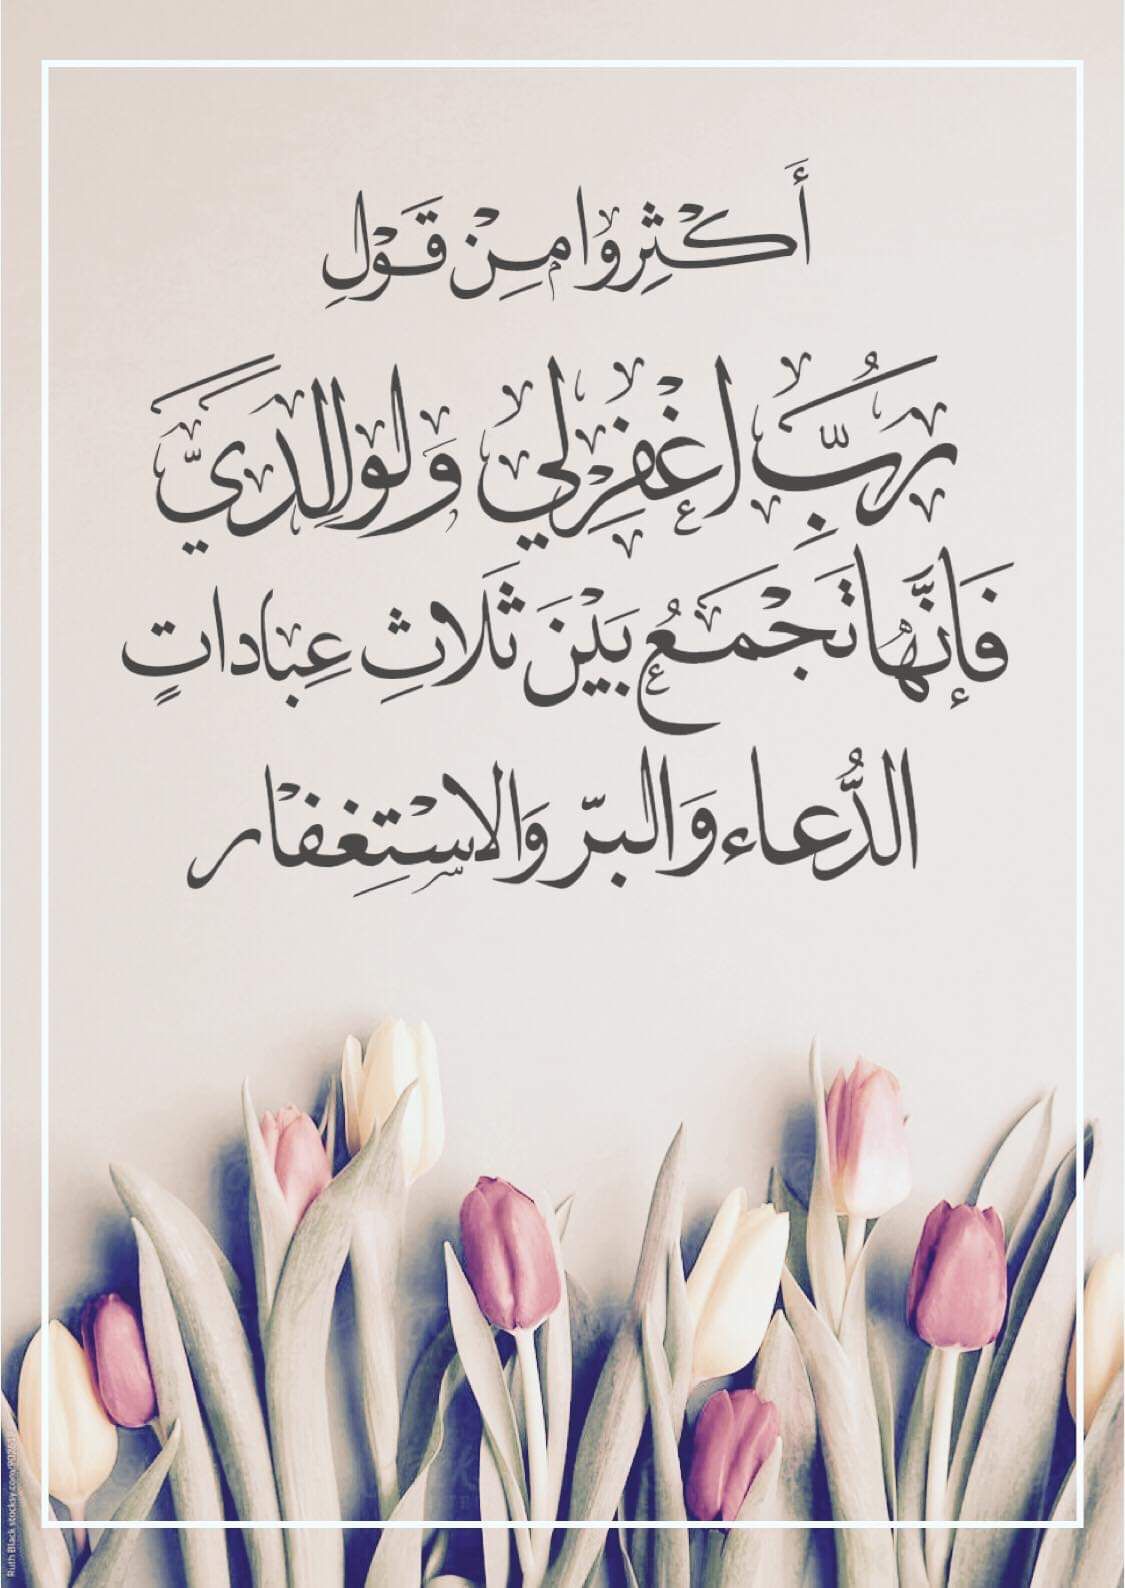 أَكْثِرُوا مِنْ قَوْلِ
رُبَّ اغْفِرْ لِي وَلِوَالِدَيَّ
فَإِنَّهَا تَجْمَعُ بَيْنَ ثَلَاثِ عِبَادَاتٍ
الدُّعَاء وَالبرّ وَالاسْتِغِفْار
Ruth Black stocksy.com/902631